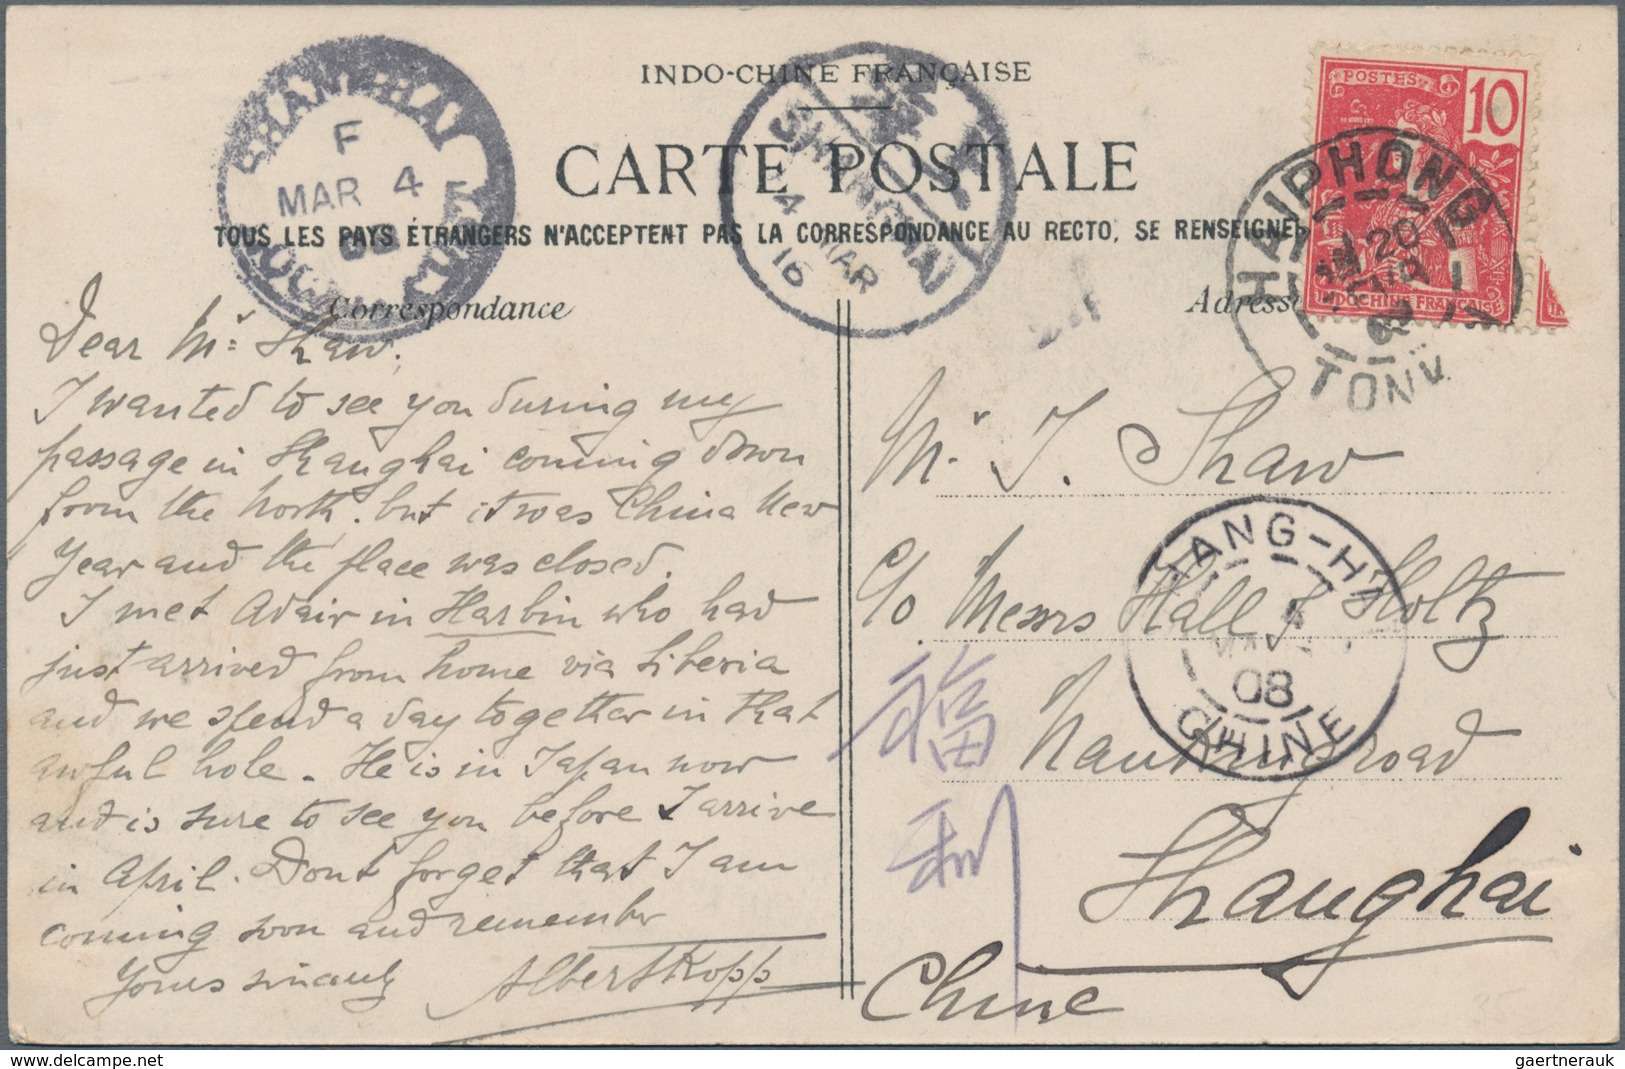 INDO-CHINE FRANÇAISE
CARTE POSTALE
TOUS LES PAYS ÉTRANGERS N'ACCEPTENT PAS LA CORRESPONDANCE AU RECTO, SE RENSEIGNER
Correspondance
Adresse
POSTES
10
INDOCHINE FRANÇAISE
HAIPHONG
20
TONK
SHANGHAI
F
MAR 4
08
LOCAL POST
SHANGHAI
4 MAR
16
Dear Mr Shaw,
I wanted to see you during my
passage in Shanghai coming down
from the North. but it was China New
Year and the place was closed.
I met Adair in Harbin who had
just arrived from home via Siberia
and we spend a day together in that
awful hole. He is in Japan now
and is sure to see you before I arrive
in April. Dont forget that I am
coming soon and remember
Yours sincerely
Albert Kopp
Mr. T. Shaw
c/o. Messrs Hall & Holtz
Nanking road
Shanghai
Chine
福
利
HANG-HAI
08
CHINE
35
gaertnerauk